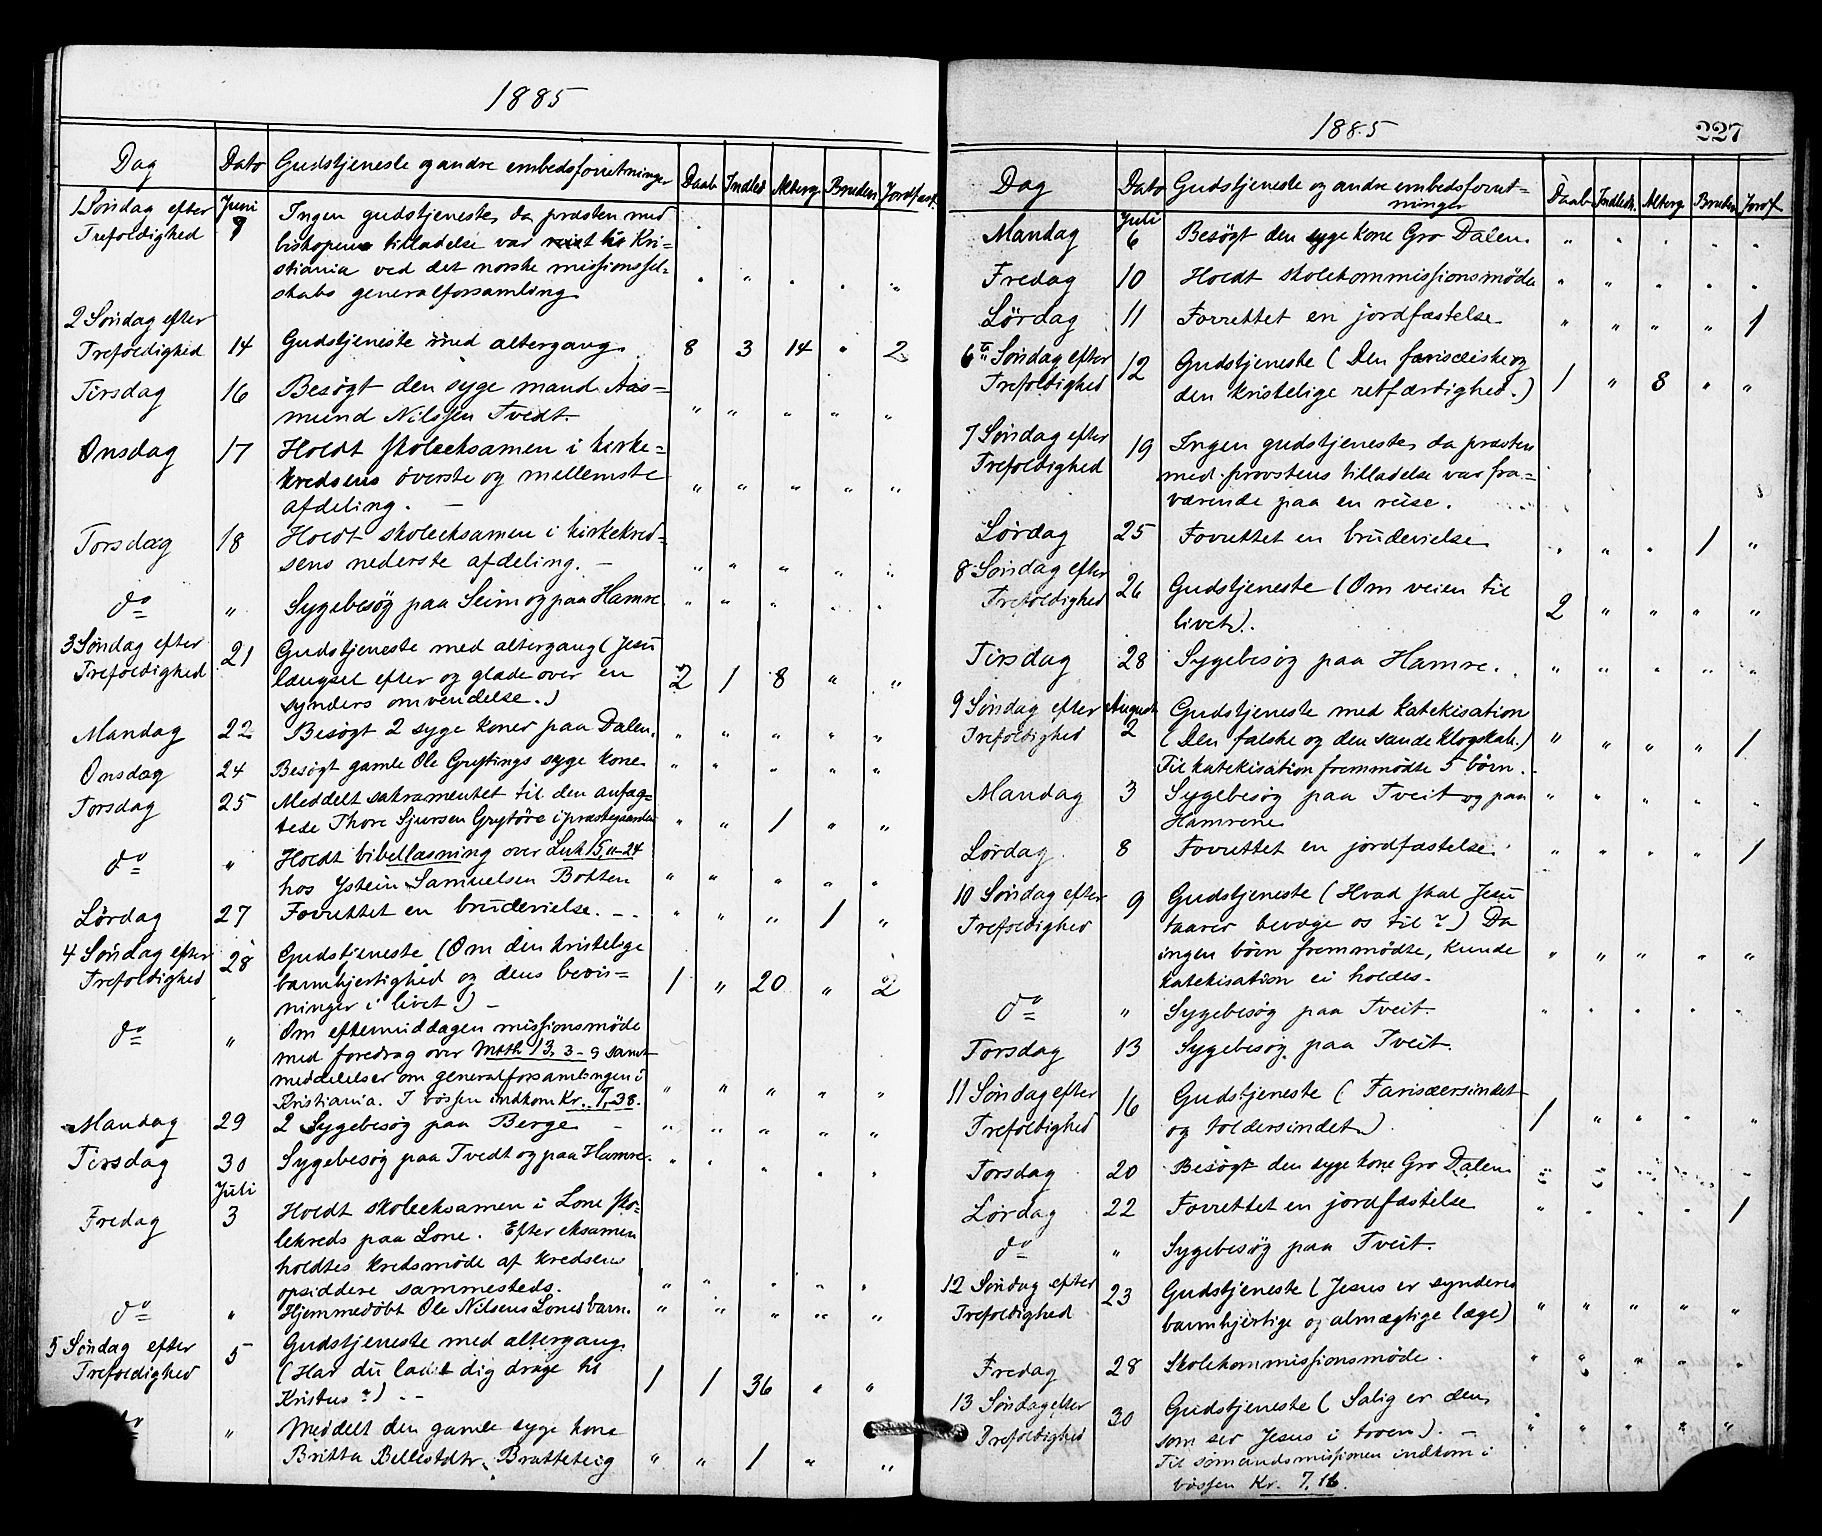 1885
Dag Dato Gudstjeneste og andre embedsforretninger Daab Indled Alterg Bruden Jordfæst.
1 Søndag efter Juni Ingen gudstjeneste, da præsten med
Trefoldighed 7 bishopens tilladelse var reist til Kri-
stiania ved det norske missionssel-
skabs generalforsamling. " " " " "
2 Søndag efter
Trefoldighed 14 Gudstjeneste med altergang. 8 3 14 " 2
Tirsdag 16 Besøgt den syge mand Aas-
mund Nilssen Tvedt. " " " " "
Onsdag 17 Holdt skoleeksamen i kirke-
kredsens øverste og mellemste
afdeling. — " " " " "
Torsdag 18 Holdt skoleeksamen i kirkekred-
sens nederste afdeling. — " " " " "
do " Sygebesøg paa Seim og paa Hamre. " " " " "
3 Søndag efter 21 Gudstjeneste med altergang (Jesu
Trefoldighed længsel efter og glæde over en 2 1 8 " "
synders omvendelse.)
Mandag 22 Besøgt 2 syge koner paa Dalen. " " " " "
Onsdag 24 Besøgt gamle Ole Grytings syge kone. " " " " "
Torsdag 25 Meddelt sakramentet til den anfæg-
tede Thore Sjursen Grytøre i præstegaarden " " 1 " "
do " Holdt bibellæsning over Luk 15, 11-24
hos Ystein Samuelsen Botten " " " " "
Lørdag 27 Forrettet en brudevielse. — " " " 1 "
4 Søndag efter 28 Gudstjeneste (Om den kristelige
Trefoldighed barmhjertighed og dens bevis- 1 " 20 " 2
ninger i livet) —
do " Om eftermiddagen missionsmøde
med foredrag over Mtth 13, 3-9 samt
meddelelser om generalforsamlingen i
Kristiania. I bøssen indkom Kr. 7,38. " " " " "
Mandag 29 2 Sygebesøg paa Berge — " " " " "
Tirsdag 30 Sygebesøg paa Tvedt og paa Hamre. " " " " "
Juli
Fredag 3 Holdt skoleeksamen i Lone sko-
lekreds paa Lone. Efter eksamen
holdtes kredsmøde af kredsens
opsiddere sammesteds. " " " " "
do " Hjemmedøbt Ole Nilsens Lones barn. " " " " "
5 Søndag efter 5 Gudstjeneste med altergang
Trefoldighed (Har du ladet dig drage til
Kristus?) — 1 1 36 " "
do " Meddelt den gamle syge kone
Britta Bellestdtr. Bratteteig " " 1 " "
1885 227
Dag Dato Gudstjeneste og andre embedsforret-
ninger Daab Indledn. Alterg Bruden Jordf.
Juli
Mandag 6 Besøgt den syge kone Gro Dalen. " " " " "
Fredag 10 Holdt skolekommissionsmøde " " " " "
Lørdag 11 Forrettet en jordfæstelse. " " " " 1
6te Søndag efter 12 Gudstjeneste (Den farisæiske og
Trefoldighed den kristelige retfærdighed.) 1 " 8 " "
7 Søndag efter 19 Ingen gudstjeneste, da præsten
Trefoldighed med provstens tilladelse var fra-
værende paa en reise.
Lørdag 25 Forrettet en brudevielse. " " " 1 "
8 Søndag efter 26 Gudstjeneste (Om veien til
Trefoldighed livet). 2 " " " "
Tirsdag 28 Sygebesøg paa Hamre. " " " " "
9 Søndag efter August Gudstjeneste med katekisation
Trefoldighed 2 (Den falske og den sande klogskab.) " " " " 1
Til katekisation fremmødte 5 børn.
Mandag 3 Sygebesøg paa Tveit og paa " " " " "
Hamrene
Lørdag 8 Forrettet en jordfæstelse. " " " " 1
10 Søndag efter 9 Gudstjeneste (Hvad skal Jesu
Trefoldighed taarer bevæge os til?) Da
ingen børn fremmødte, kunde " " " " "
katekisation ei holdes.
do " Sygebesøg paa Tveit. " " " " "
Torsdag 13 Sygebesøg paa Tveit.
11 Søndag efter 16 Gudstjeneste (Farisæersindet
Trefoldighed og toldersindet). 1 " " " "
Torsdag 20 Besøgt den syge kone Gro Dalen " " " " "
Lørdag 22 Forrettet en jordfæstelse " " " " 1
do " Sygebesøg paa Tveit.
12 Søndag efter 23 Gudstjeneste (Jesus er synderes
Trefoldighed barmhjertige og almægtige læge) " " " " "
Fredag 28 Skolekommissionsmøde. " " " " "
13 Søndag efter 30 Gudstjeneste (Salig er den,
Trefoldighed som ser Jesus i troen). — " " " " "
Til sømandsmissionen indkom i
bøssen Kr. 7,16.